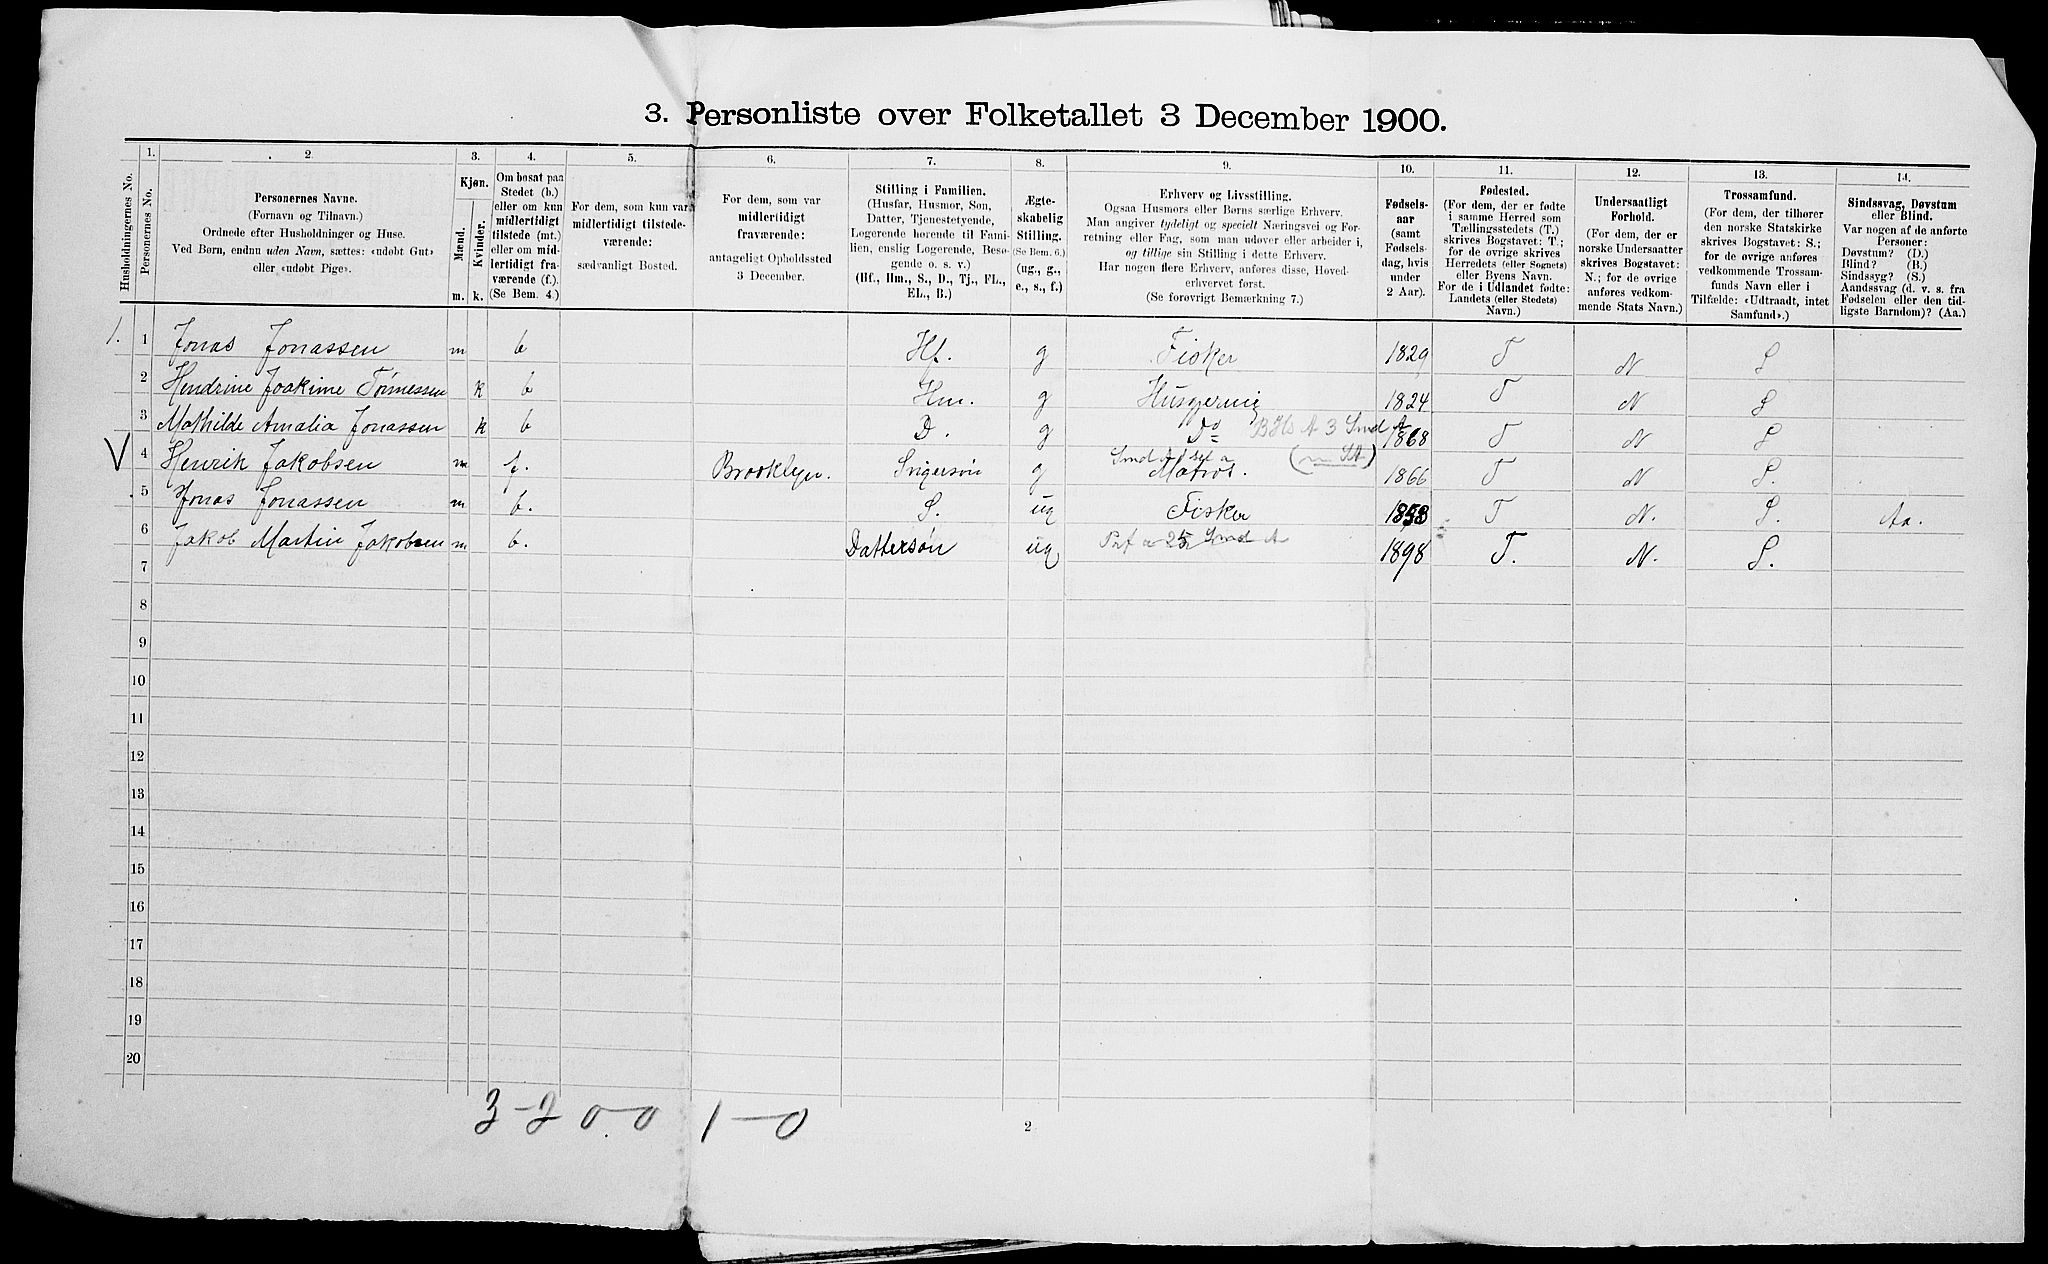 3. Personliste over Folketallet 3 December 1900.
Husholdningernes No.
1.
Personernes No.
2.
Personernes Navne.
(Fornavn og Tilnavn.)
Ordnede efter Husholdninger og Huse.
Ved Børn, endnu uden Navn, sættes: «udøbt Gut»
eller «udøbt Pige».
3.
Kjøn.
Mænd.
Kvinder.
m.
k.
4.
Om bosat paa
Stedet (b.)
eller om kun
midlertidigt
tilstede (mt.)
eller om mid-
lertidigt fra-
værende (f.).
(Se Bem. 4.)
5.
For dem, som kun var
midlertidigt tilstede-
værende:
sædvanligt Bosted.
6.
For dem, som var
midlertidigt
fraværende:
antageligt Opholdssted
3 December.
7.
Stilling i Familien.
(Husfar, Husmor, Søn,
Datter, Tjenestetyende,
Logerende hørende til Fami-
lien, enslig Logerende, Besø-
gende o. s. v.)
(Hf., Hm., S., D., Tj., FL.,
EL., B.)
8.
Ægte-
skabelig
Stilling.
(Se Bem. 6.)
(ug., g.,
e., s., f.)
9.
Erhverv og Livsstilling.
Ogsaa Husmors eller Børns særlige Erhverv.
Man angiver tydeligt og specielt Næringsvei og For-
retning eller Fag, som man udøver eller arbeider i,
og tillige sin Stilling i dette Erhverv.
Har nogen flere Erhverv, anføres disse, Hoved-
erhvervet først.
(Se forøvrigt Bemærkning 7.)
10.
Fødsels-
aar
(samt
Fødsels-
dag, hvis
under
2 Aar).
11.
Fødested.
(For dem, der er fødte
i samme Herred som
Tællingsstedets (T.)
skrives Bogstavet: T.;
for de øvrige skrives
Herredets (eller Sognets)
eller Byens Navn.
For de i Udlandet fødte:
Landets (eller Stedets)
Navn.)
12.
Undersaatligt
Forhold.
(For dem, der er
norske Undersaatter
skrives Bogstavet:
N.; for de øvrige
anføres vedkom-
mende Stats Navn.)
13.
Trossamfund.
(For dem, der tilhører
den norske Statskirke
skrives Bogstavet: S.;
for de øvrige anføres
vedkommende Trossam-
funds Navn eller i
Tilfælde: «Udtraadt, intet
Samfund».)
14.
Sindssvag, Døvstum
eller Blind.
Var nogen af de anførte
Personer:
Døvstum? (D.)
Blind? (B.)
Sindssyg? (S.)
Aandssvag (d. v. s. fra
Fødselen eller den tid-
ligste Barndom)? (Aa.)
1. 1 Jonas Jonassen m b Hf. g Fisker 1829 T N S
2 Hendrine Joakime Tørnessen k b Hm. g Husgerning 1824 T N S
3 Mathilde Amalia Jonassen k b D. g Do 1868 T N S
V 4 Henrik Jakobsen m f. Brooklyn. Svigersøn g Matros. 1866 T N S.
5 Jonas Jonassen m b. S. ug Fisker 1858 T N. S. Aa.
6 Jakob Martin Jakobsen m b. Dattersøn ug 1898 T. N. S.
7
8
9
10
11
12
13
14
15
16
17
18
19
20
3-2 0-0 1-0
2